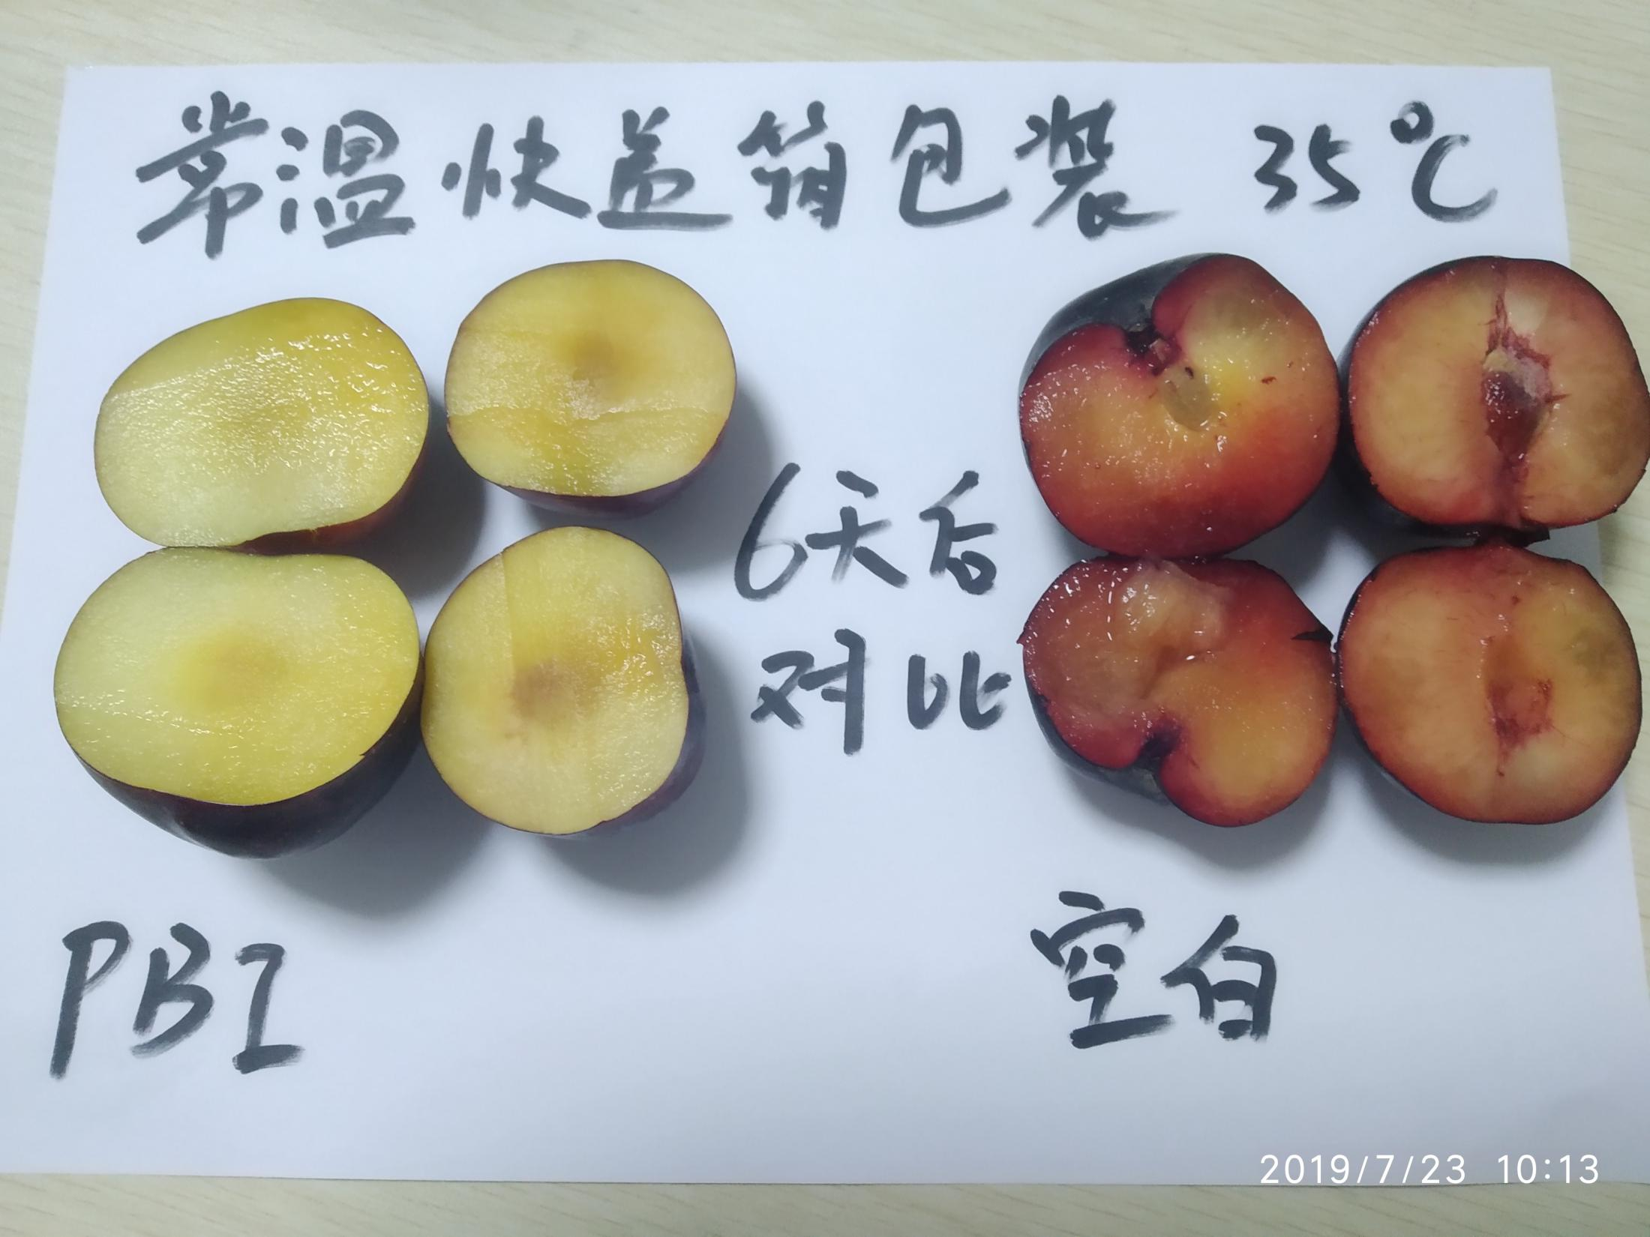 常温快盖箱包装 35℃
6天后
对比
PBI
空白
2019/7/23 10:13